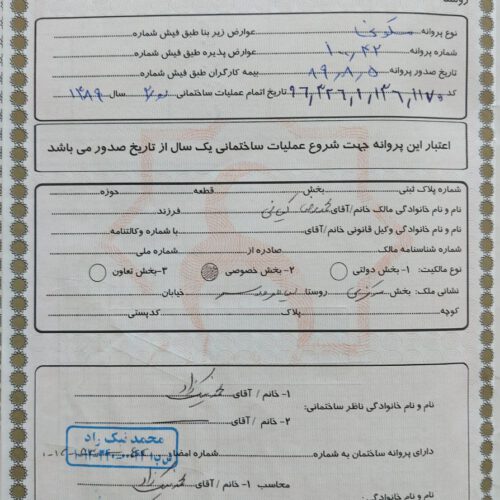 نوع پروانه مسکونی عوارض زیر بنا طبق فیش شماره
شماره پروانه ۱۰٫۴۲ عوارض پذیره طبق فیش شماره
تاریخ صدور پروانه ۸۹٫۸٫۵ بیمه کارگران طبق فیش شماره
کد تاریخ اتمام عملیات ساختمانی سال ۱۳۸۹
اعتبار این پروانه جهت شروع عملیات ساختمانی یک سال از تاریخ صدور می باشد
شماره پلاک ثبتی بخش قطعه حوزه
نام و نام خانوادگی مالک خانم/آقای فرزند
نام و نام خانوادگی وکیل قانونی خانم/آقای با شماره وکالتنامه
شماره شناسنامه مالک صادره از شماره ملی
نوع مالکیت: ۱-بخش دولتی ۲-بخش خصوصی ۳-بخش تعاون
نشانی ملک: بخش مرکزی روستا خیابان
کوچه پلاک کدپستی
۱- خانم / آقای محمد نیک راد
نام و نام خانوادگی ناظر ساختمانی:
۲- خانم / آقای
محمد نیک راد
دارای پروانه ساختمان به شماره شماره امضاء
محاسب ۱- خانم / آقای